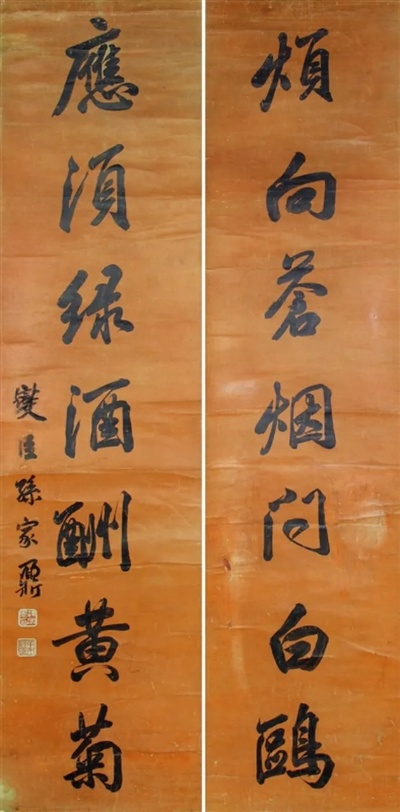 煩向蒼烟问白鷗
應須緑酒酬黄菊
燮臣孫家鼐